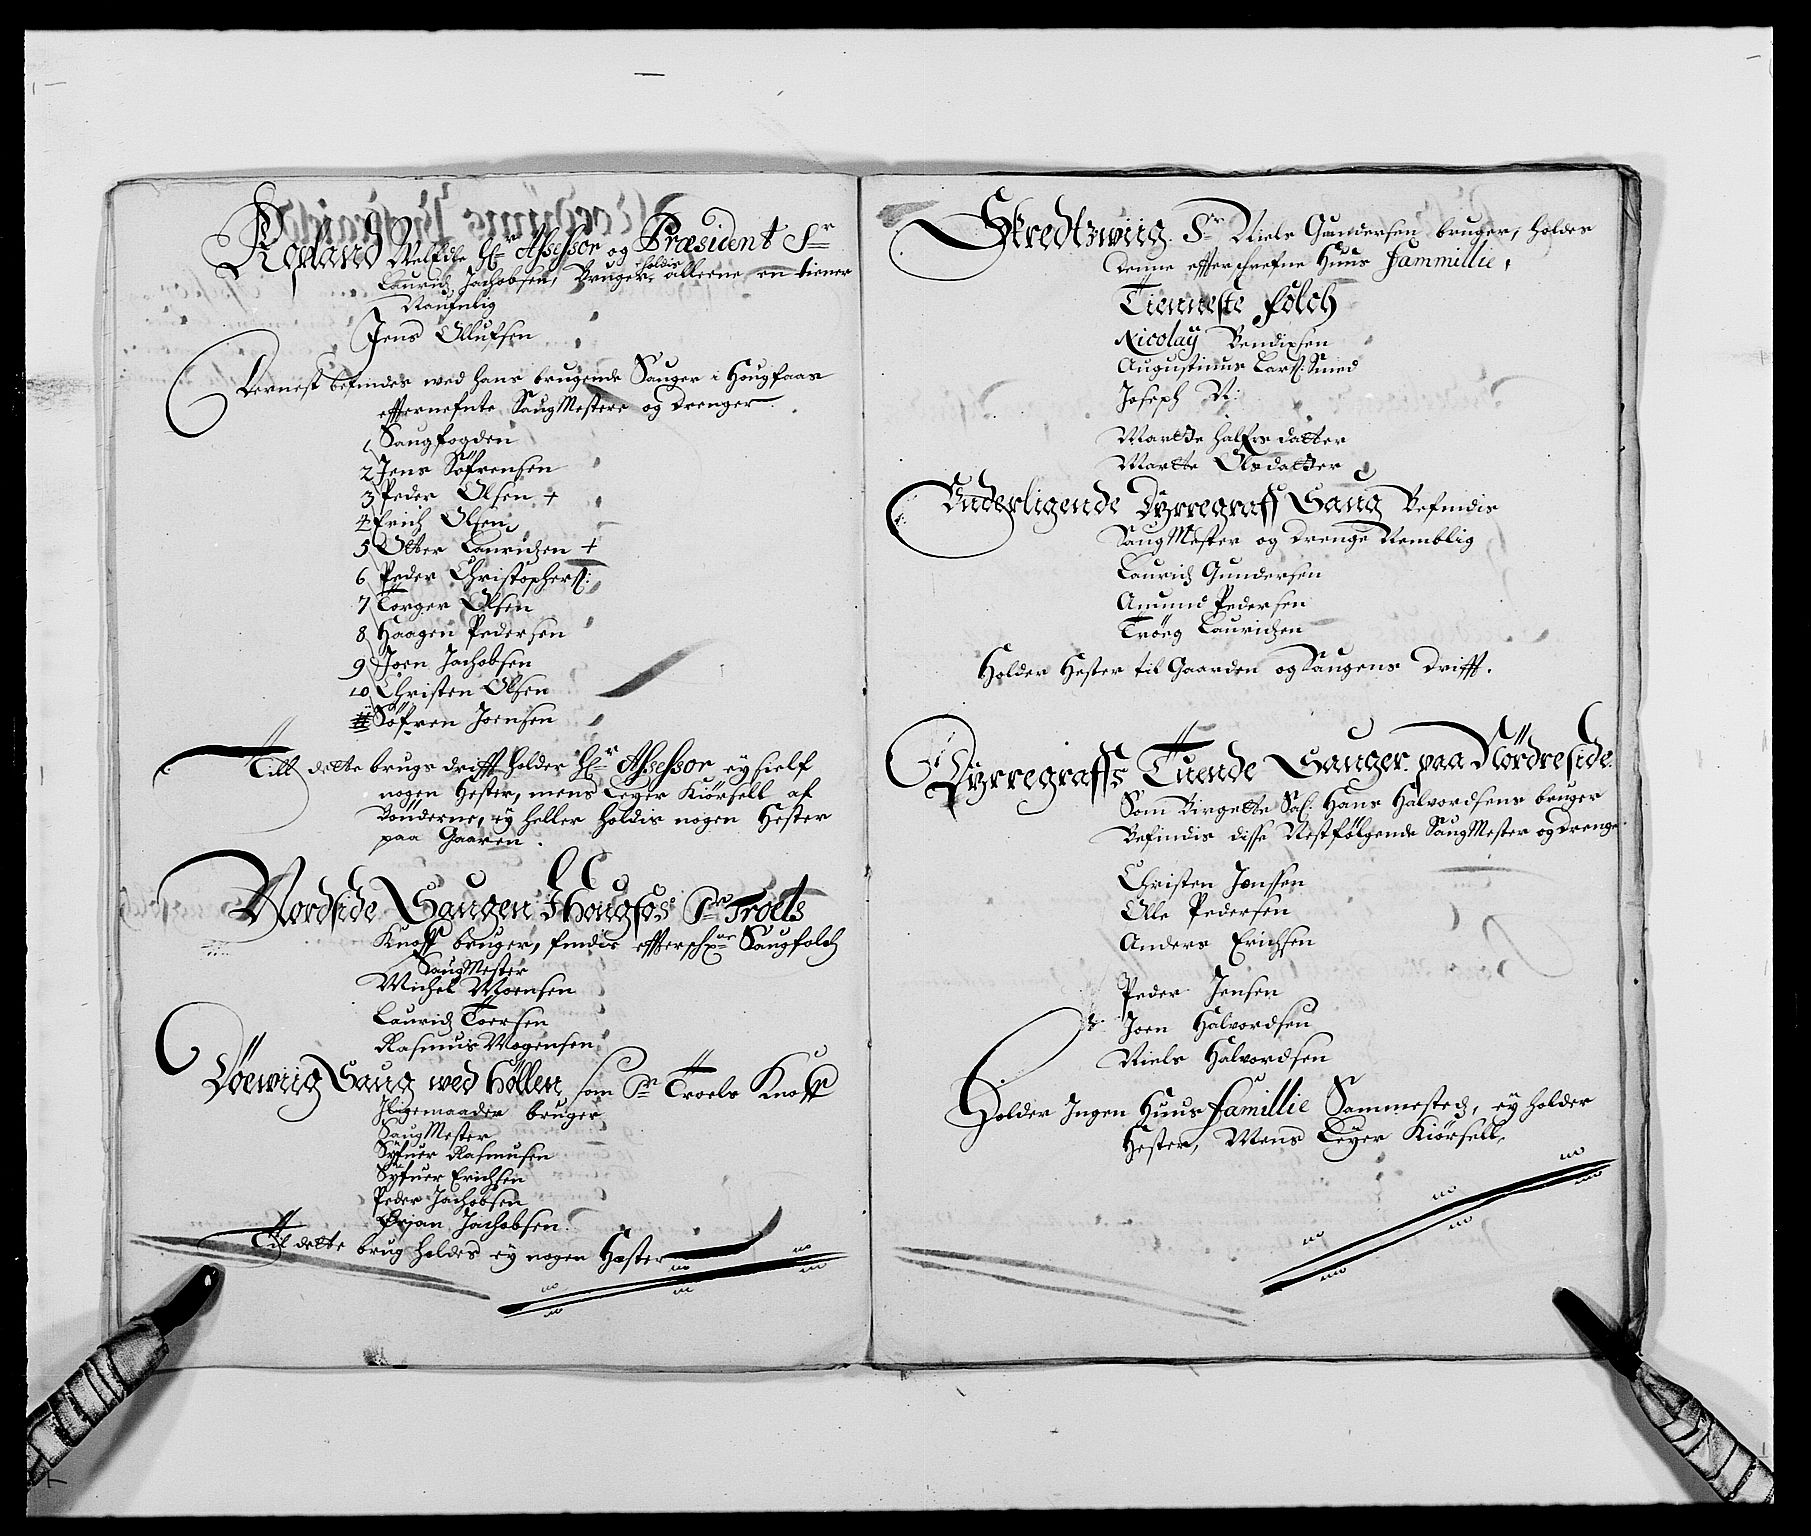 Roland Welædle Hr Assessor og Præsident Sr
Laurids Jachobsen, Bruger, holdis allene en tiener
Naufnlig
Jens Ollufsen
Dernest befindes wed hans brugende Sauger i Hougfaas
effternefnte SaugMestere og drenger
1 Saugfogden
2 Jens Søfrensen
3 Peder Olsen +
4 Erich Olsen
5 Otter Lauridsen +
6 Peder Christophers:
7 Torger Olsen
8 Haagen Pedersen
9 Joen Jachobsen
10 Christen Olsen
11 Søfren Joensen
Till dette brugs drifft holder Hr Assessor ey sielf
nogen Hester, mens Leyer Kiørsell af
Bønderne, ey heller holdis nogen Hester
paa Gaaren.
Nordside Saugen I Hougfos Sr Troels
Knoff bruger, findis effterschne Saugfolch
SaugMester
Michel Moensen
Laurids Toersen
Rasmus Mogensen
Døewiig Saug wed Høllen, som Sr Troels Knoff
Iligemaader bruger
SaugMester
Syfuer Rasmusen
Syfuer Erichsen
Peder Jachobsen
Ørjan Jachobsen.
Til dette brug holdes ey nogen Hæster
Skredtzwiig. Sr Niels Gundersen bruger, holder
denne effterschrefne Huus fammillie,
Tienneste folch
Nicolaÿ Bendixsen
Augustinus Lars: Smed
Joseph N:
Martte halfrs datter
Martte Olsdatter
Underligende Dyrregraff Saug Befindis
SaugMester og drenge Nemblig
Laurids Gundersen
Amund Pedersen
Trøeg Lauridsen
Holder Hester til Gaarden og Saugens Drifft.
Dyrregraffs Tuende Sauger paa Nordreside.
Som Birgette Sal: Hans Halvordsens bruger
Befindis disse Nestfølgende SaugMester og drenge
Christen Jonssen
Olle Pedersen
Anders Erichsen
Peder Jensen
Joen Halvordsen
Niels Halvordsen
Holder Ingen Huus famillie Sammested, ey holder
Hester, Mens Leyer Kiørsell,